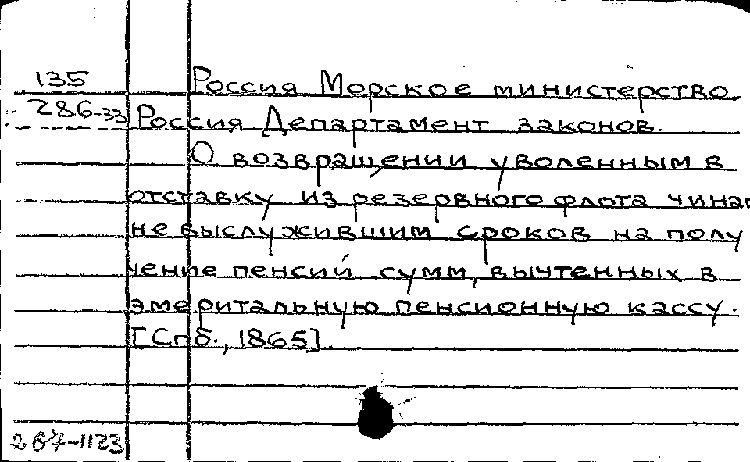 135 Россия Морское министерство
286-33 Россия Департамент законов.
О возвращении уволенным в
отставку из резервного флота чинам
не выслужившим сроков на полу
чение пенсий сумм, вычтенных в
эмеритальную пенсионную кассу.
[Спб., 1865].
267-1123